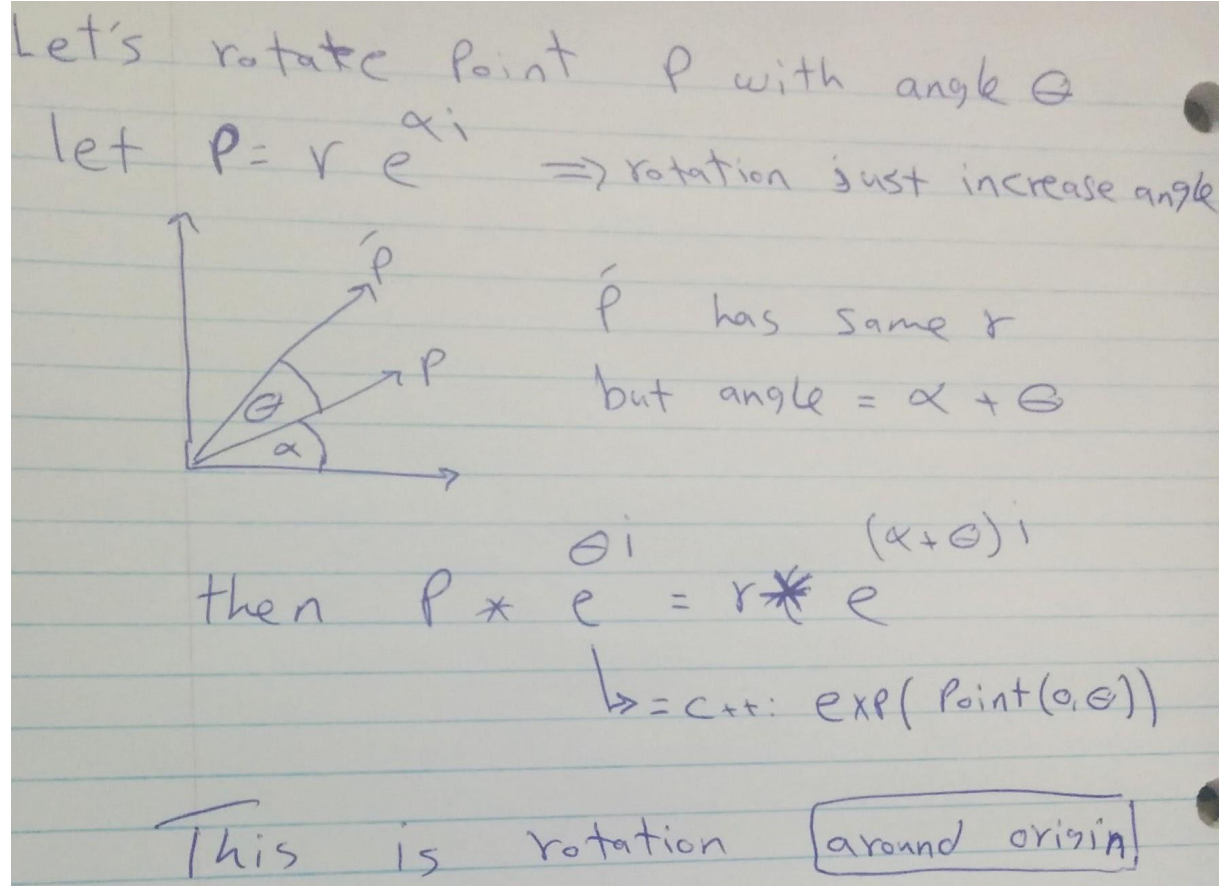 Let's rotate Point P with angle θ
let P = r e^{αi} ⇒ rotation just increase angle
Ṕ
Ṕ has same r
P
but angle = α + θ
θ
α
then P * e^{θi} = r * e^{(α+θ)i}
↳ = C++: exp( Point(0,θ))
This is rotation around origin